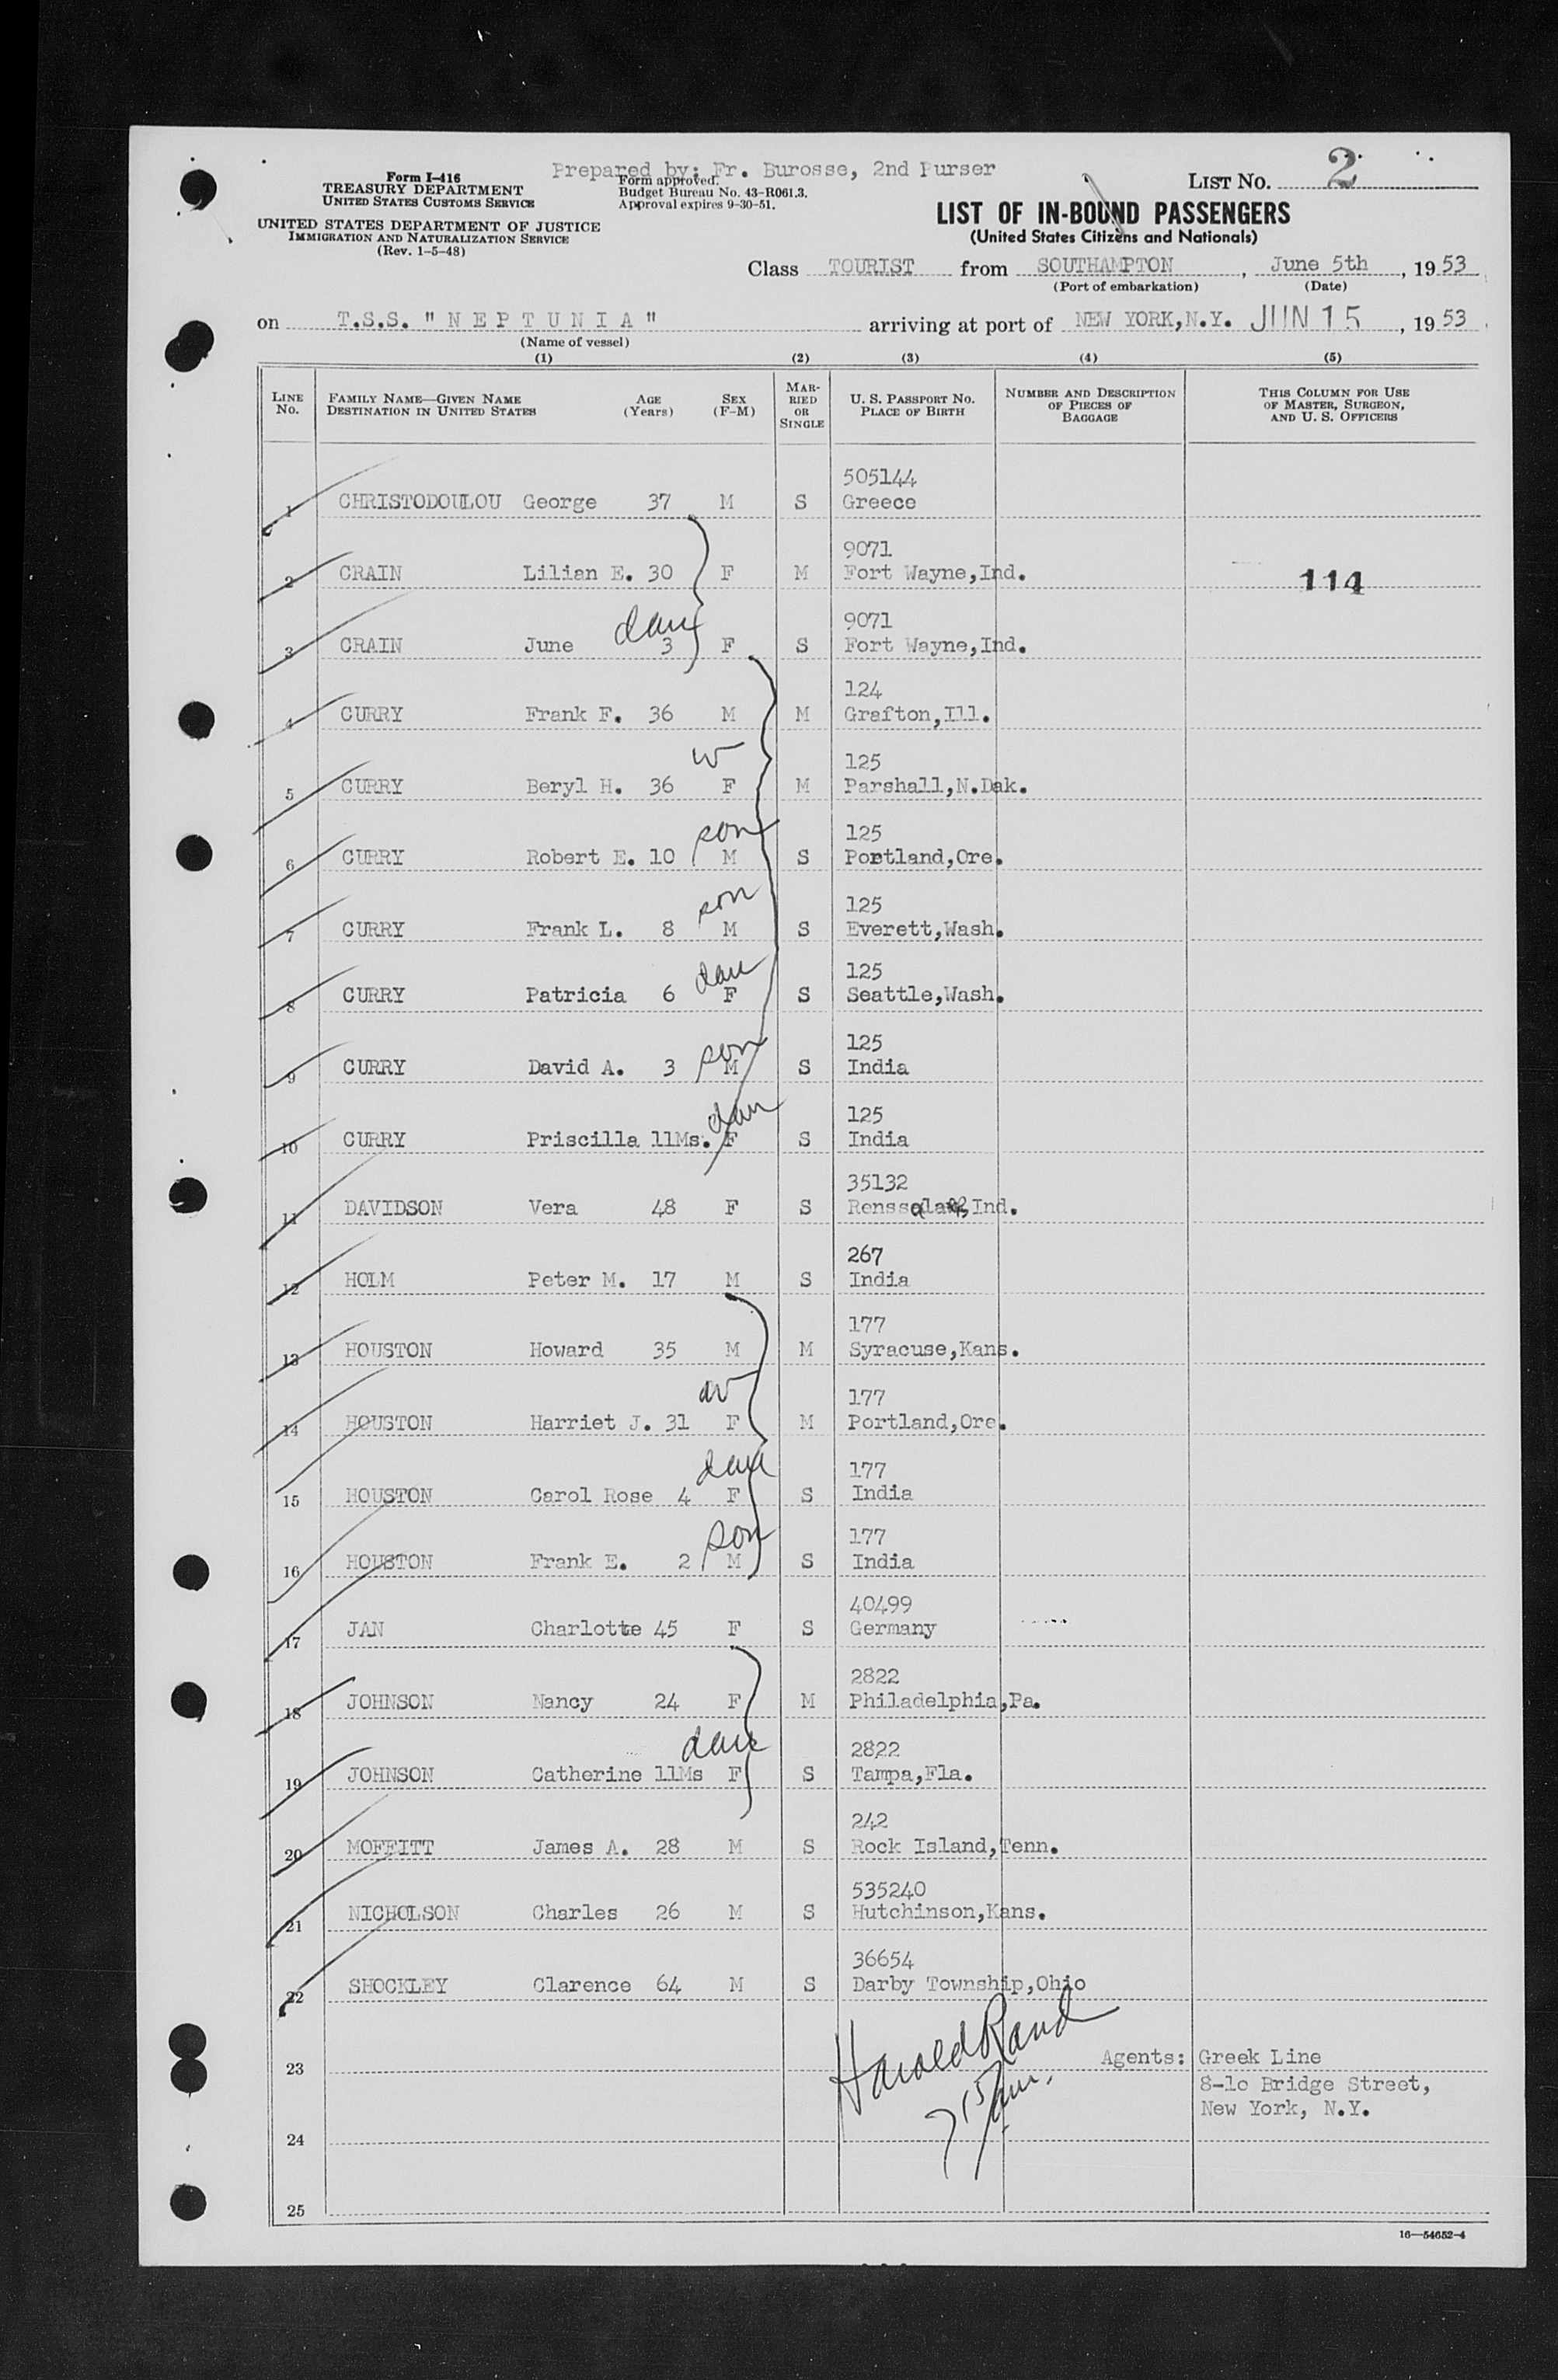 Prepared by: Fr. Burosse, 2nd Purser
Form I-416
TREASURY DEPARTMENT
UNITED STATES CUSTOMS SERVICE
UNITED STATES DEPARTMENT OF JUSTICE
IMMIGRATION AND NATURALIZATION SERVICE
(Rev. 1-5-48)
Form approved.
Budget Bureau No. 43-R061.3.
Approval expires 9-30-51.
LIST NO. 2
LIST OF IN-BOUND PASSENGERS
(United States Citizens and Nationals)
Class TOURIST from SOUTHAMPTON, June 5th, 1953
(Port of embarkation) (Date)
on T.S.S. "NEPTUNIA" arriving at port of NEW YORK, N.Y. JUN 15, 1953
(Name of vessel)
(1) (2) (3) (4) (5)
LINE NO. FAMILY NAME—GIVEN NAME DESTINATION IN UNITED STATES AGE (Years) SEX (F-M) MARRIED OR SINGLE U. S. PASSPORT NO. PLACE OF BIRTH NUMBER AND DESCRIPTION OF PIECES OF BAGGAGE THIS COLUMN FOR USE OF MASTER, SURGEON, AND U. S. OFFICERS
505144
1 CHRISTODOULOU George 37 M S Greece
9071
2 CRAIN Lilian E. 30 F M Fort Wayne,Ind. 114
dau 9071
3 CRAIN June 3 F S Fort Wayne,Ind.
124
4 CURRY Frank F. 36 M M Grafton,Ill.
w 125
5 CURRY Beryl H. 36 F M Parshall,N.Dak.
son 125
6 CURRY Robert E. 10 M S Portland,Ore.
son 125
7 CURRY Frank L. 8 M S Everett,Wash.
dau 125
8 CURRY Patricia 6 F S Seattle,Wash.
son 125
9 CURRY David A. 3 M S India
dau 125
10 CURRY Priscilla 11Ms. F S India
35132
11 DAVIDSON Vera 48 F S Ind.
267
12 HOLM Peter M. 17 M S India
177
13 HOUSTON Howard 35 M M Syracuse,Kans.
w 177
14 HOUSTON Harriet J. 31 F M Portland,Ore.
dau 177
15 HOUSTON Carol Rose 4 F S India
son 177
16 HOUSTON Frank E. 2 M S India
40499
17 JAN Charlotte 45 F S Germany
2822
18 JOHNSON Nancy 24 F M Philadelphia,Pa.
dau 2822
19 JOHNSON Catherine 11Ms F S Tampa,Fla.
242
20 MOFFITT James A. 28 M S Rock Island,Tenn.
535240
21 NICHOLSON Charles 26 M S Hutchinson,Kans.
36654
22 SHOCKLEY Clarence 64 M S Darby Township,Ohio
Harold Rand
23 Agents: Greek Line
8-10 Bridge Street,
New York, N.Y.
715 am.
24
25
16—54652-4